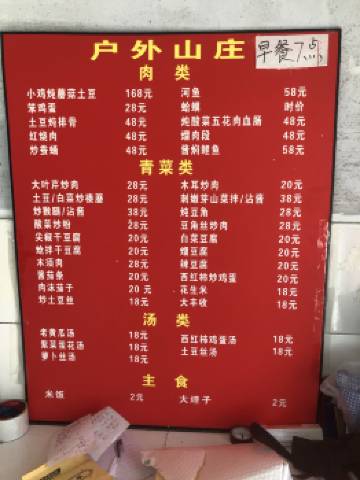 户外山庄
早餐7点
肉 类
小鸡炖蘑菇土豆 168元 河鱼 58元
笨鸡蛋 28元 蛤蟆 时价
土豆炖排骨 48元 炖酸菜五花肉血肠 48元
红烧肉 48元 熘肉段 48元
炒蚕蛹 48元 酱焖鲤鱼 58元
青菜类
大叶芹炒肉 28元 木耳炒肉 20元
土豆/白菜炒 28元 刺嫩芽山菜拌/沾酱 38元
/沾酱 38元 炖豆角 20元
酸菜炒粉 28元 豆角丝炒肉 20元
尖椒干豆腐 20元 白菜豆腐 20元
炝拌干豆腐 20元 熘豆腐 20元
木须肉 20元 辣豆腐 20元
酱茄条 20元 西红柿炒鸡蛋 20元
肉沫茄子 20元 花生米 18元
炒土豆丝 18元 大丰收 18元
汤 类
老黄瓜汤 18元 西红柿鸡蛋汤 18元
紫菜蛋花汤 18元 土豆丝汤 18元
萝卜丝汤 18元
主 食
米饭 2元 大 子 2元